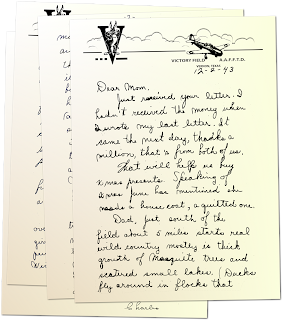 VICTORY FIELD A.A.F.F.T.D.
VERNON, TEXAS
12-2-43
Dear Mom,
Just received your letter. I
hadn't received the money when
I wrote my last letter. It
came the next day, thanks a
million, that is from both of us.
That will help us buy
Xmas presents. Speaking of
Xmas June has mentioned she
needs a house coat, a quilted one.
Dad, just south of the
field about 5 miles starts real
wild country mostly is thick
growth of Mosquite trees and
scatered small lakes. (Ducks
fly around in flocks that
Charles